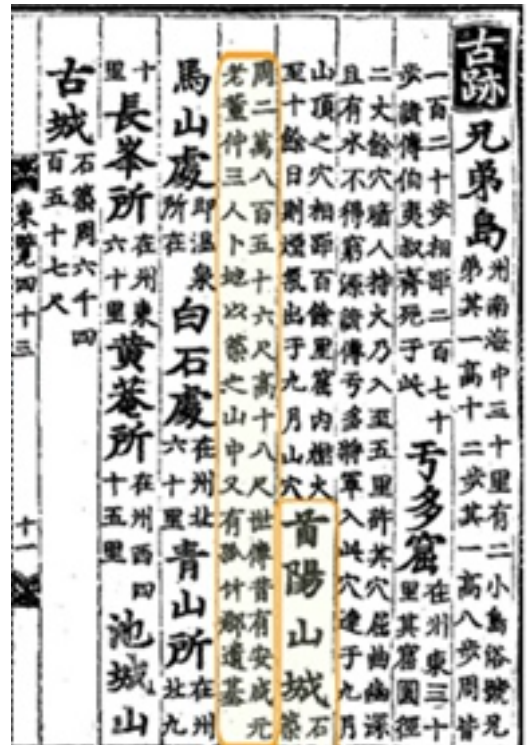 古跡
兄弟島
州南海中三十里有二小島俗號兄
弟其一高十二步其一高八步周皆
一百二十步相距二百七十
步諺傳伯夷叔齊死于此
亏多窟
在州東三十
里其窟圓徑
二丈餘穴暗人持火乃入至五里許其穴屈曲幽深
且有水不得窮源諺傳亏多將軍入此穴達于九月
山頂之穴相距百餘里窟內火
至十餘日則煙氣出于九月山穴
首陽山城
石
築
周二萬八百五十六尺高十八尺世傳昔有安咸元
老董仲三人卜地以築之山中又有孤竹郡遺基
馬山處
卽溫泉
所在
白石處
在州北
六十里
青山所
在州
北九
十
里
長峯所
在州東
六十里
黃菴所
在州西四
十五里
池城山
古城
石築周六千四
百五十七尺
東覽四十三
十一